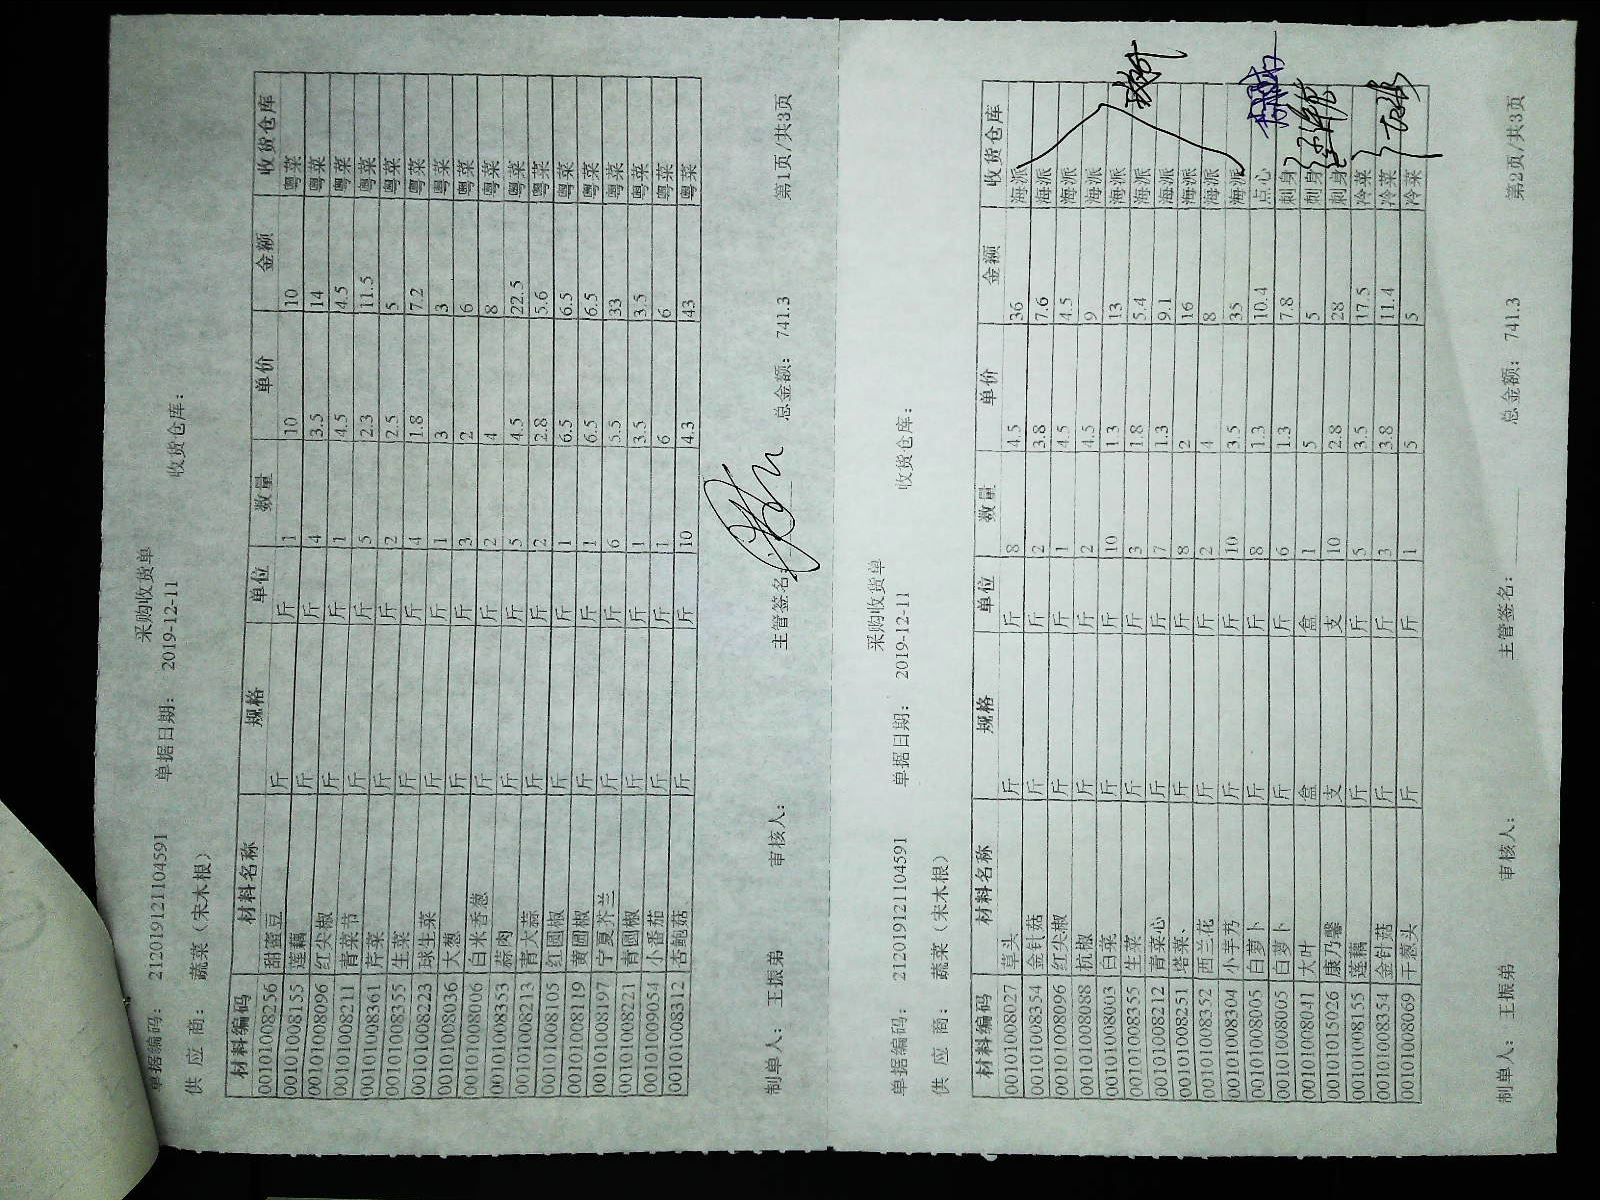 采购收货单
单据编码： 21201912110459​1 单据日期： 2019-12-11
供 应 商： 蔬菜（宋木根） 收货仓库：
材料编码 材料名称 规格 单位 数量 单价 金额 收货仓库
00101008256 甜蜜豆 斤 斤 1 10 10 粤菜
00101008155 莲藕 斤 斤 4 3.5 14 粤菜
00101008096 红尖椒 斤 斤 1 4.5 4.5 粤菜
00101008211 青菜节 斤 斤 5 2.3 11.5 粤菜
00101008361 芹菜 斤 斤 2 2.5 5 粤菜
00101008355 生菜 斤 斤 4 1.8 7.2 粤菜
00101008223 球生菜 斤 斤 1 3 3 粤菜
00101008036 大葱 斤 斤 3 2 6 粤菜
00101008006 白米香葱 斤 斤 2 4 8 粤菜
00101008353 蒜肉 斤 斤 5 4.5 22.5 粤菜
00101008213 青大蒜 斤 斤 2 2.8 5.6 粤菜
00101008105 红圆椒 斤 斤 1 6.5 6.5 粤菜
00101008119 黄圆椒 斤 斤 1 6.5 6.5 粤菜
00101008197 宁夏芥兰 斤 斤 6 5.5 33 粤菜
00101008221 青圆椒 斤 斤 1 3.5 3.5 粤菜
00101009054 小番茄 斤 斤 1 6 6 粤菜
00101008312 杏鲍菇 斤 斤 10 4.3 43 粤菜
制单人： 王振弟 审核人： 主管签名： 总金额： 741.3 第1页/共3页
采购收货单
单据编码： 212019121104591 单据日期： 2019-12-11
供 应 商： 蔬菜（宋木根） 收货仓库：
材料编码 材料名称 规格 单位 数量 单价 金额 收货仓库
00101008027 草头 斤 斤 8 4.5 36 海派
00101008354 金针菇 斤 斤 2 3.8 7.6 海派
00101008096 红尖椒 斤 斤 1 4.5 4.5 海派
00101008088 杭椒 斤 斤 2 4.5 9 海派
00101008003 白菜 斤 斤 10 1.3 13 海派
00101008355 生菜 斤 斤 3 1.8 5.4 海派
00101008212 青菜心 斤 斤 7 1.3 9.1 海派
00101008251 塔菜、 斤 斤 8 2 16 海派
00101008352 西兰花 斤 斤 2 4 8 海派
00101008304 小芋艿 斤 斤 10 3.5 35 海派
00101008005 白萝卜 斤 斤 8 1.3 10.4 点心
00101008005 白萝卜 斤 斤 6 1.3 7.8 刺身
00101008041 大叶 盒 盒 1 5 5 刺身
00101015026 康乃馨 支 支 10 2.8 28 刺身
00101008155 莲藕 斤 斤 5 3.5 17.5 冷菜
00101008354 金针菇 斤 斤 3 3.8 11.4 冷菜
00101008069 干葱头 斤 斤 1 5 5 冷菜
制单人： 王振弟 审核人： 主管签名： 总金额： 741.3 第2页/共3页